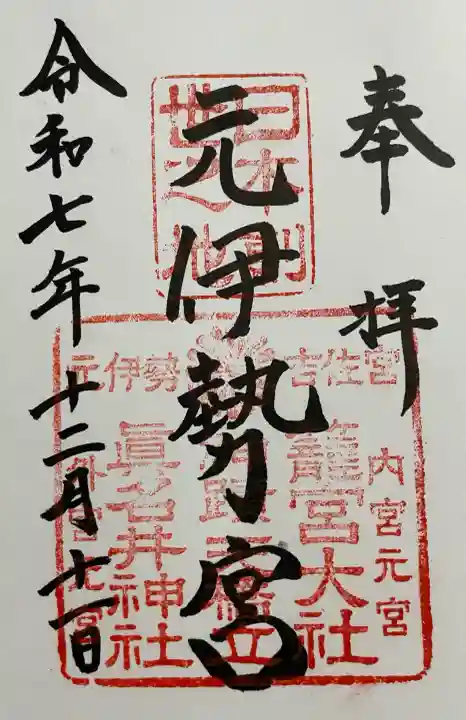 奉拝
日本創
世之地
元伊勢宮
吉佐宮
元伊勢
内宮元宮
籠宮大社
眞名井神社
令和七年十二月十一日